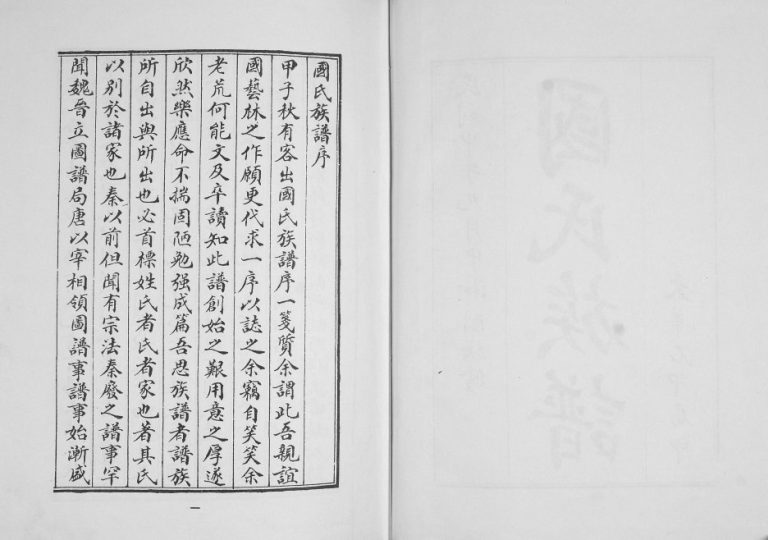 國氏族譜序
甲子秋有客出國氏族譜序一箋質余謂此吾親誼
國藝林之作願更代求一序以誌之余竊自笑笑余
老荒何能文及卒讀知此譜創始之艱用意之厚遂
欣然樂應命不揣固陋勉强成篇吾思族譜者譜族
所自出與所出也必首標姓氏者氏者家也著其氏
以別於諸家也秦以前但聞有宗法秦廢之譜事罕
聞魏晉立圖譜局唐以宰相領圖譜事譜事始漸盛
一